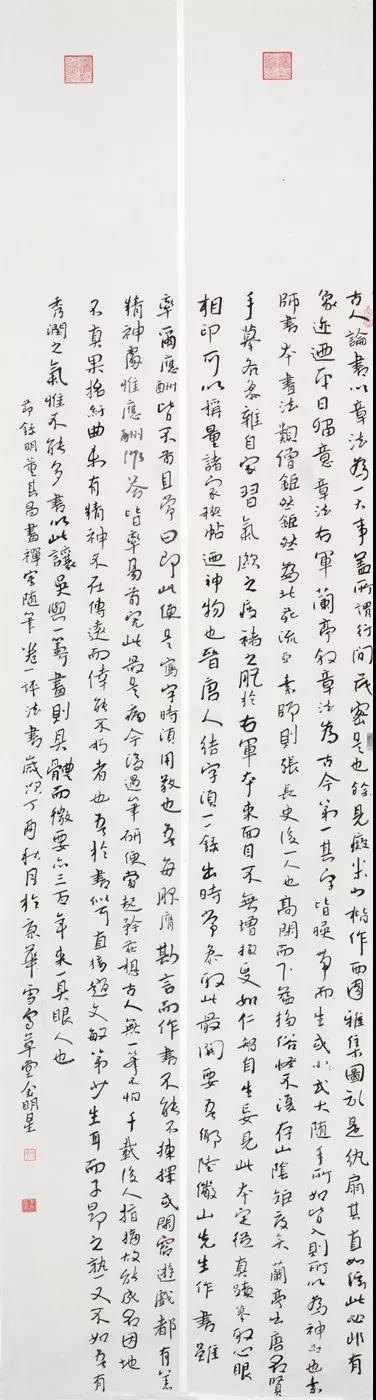 古人論書以章法為一大事蓋所謂行間茂密是也余見癡米小楷作西園雅集圖記是紈扇其直如弦此必非有
象迹迺平日留意章法右軍蘭亭敘章法為古今第一其字皆映帶而生或小或大隨手所如皆入則所以為神品也素
師書本畫法類僧巨然巨然為北苑流亞素師則張長史後一人也高閑而下益趨俗怪不復存山陰矩度矣蘭亭出唐名賢
手摹各參雜自家習氣歐之肥褚之肥於右軍本來面目不無增損更如仁智自生妄見此本定從真蹟摹取心眼
相印可以稱量諸家禊帖迺神物也晉唐人結字須一一錄出時常參取此最關要吾鄉陸儼山先生作書雖
率爾應酬皆不苟且常曰即此便是寫字時須用敬也吾每服膺斯言而作書不能不揀擇或閑窗遊戲都有着
精神處惟應酬作答皆率易苟完此最是病今後遇筆研便當起矜莊想古人無一筆不怕千載後人指摘故能成名因地
不真果招紆曲未有精神不在傳遠而倖能不朽者也吾於書似可直接趙文敏第少生耳而子昂之熟又不如吾有
秀潤之氣惟不能多書以此讓吳興一籌畫則具體而微要亦三百年來一具眼人也
節錄明董其昌畫禪室隨筆卷一評法書歲次丁酉秋月於京華雪鳥草堂金明星